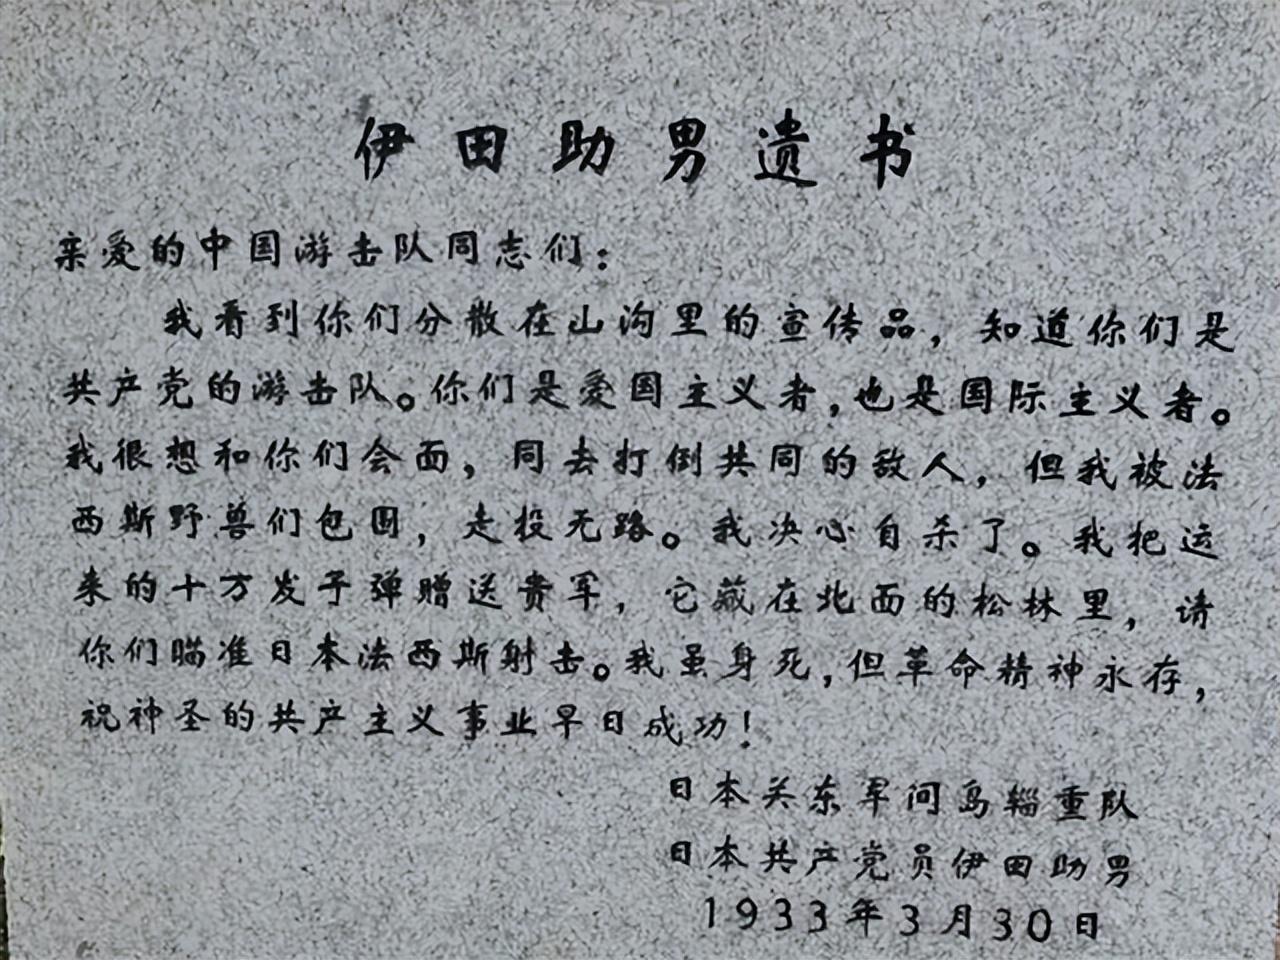 伊田助男遗书
亲爱的中国游击队同志们：
我看到你们分散在山沟里的宣传品，知道你们是
共产党的游击队。你们是爱国主义者，也是国际主义者。
我很想和你们会面，同去打倒共同的敌人，但我被法
西斯野兽们包围，走投无路。我决心自杀了。我把运
来的十万发子弹赠送贵军，它藏在北面的松林里，请
你们瞄准日本法西斯射击。我虽身死，但革命精神永存，
祝神圣的共产主义事业早日成功！
日本关东军间岛辎重队
日本共产党员伊田助男
1933年3月30日